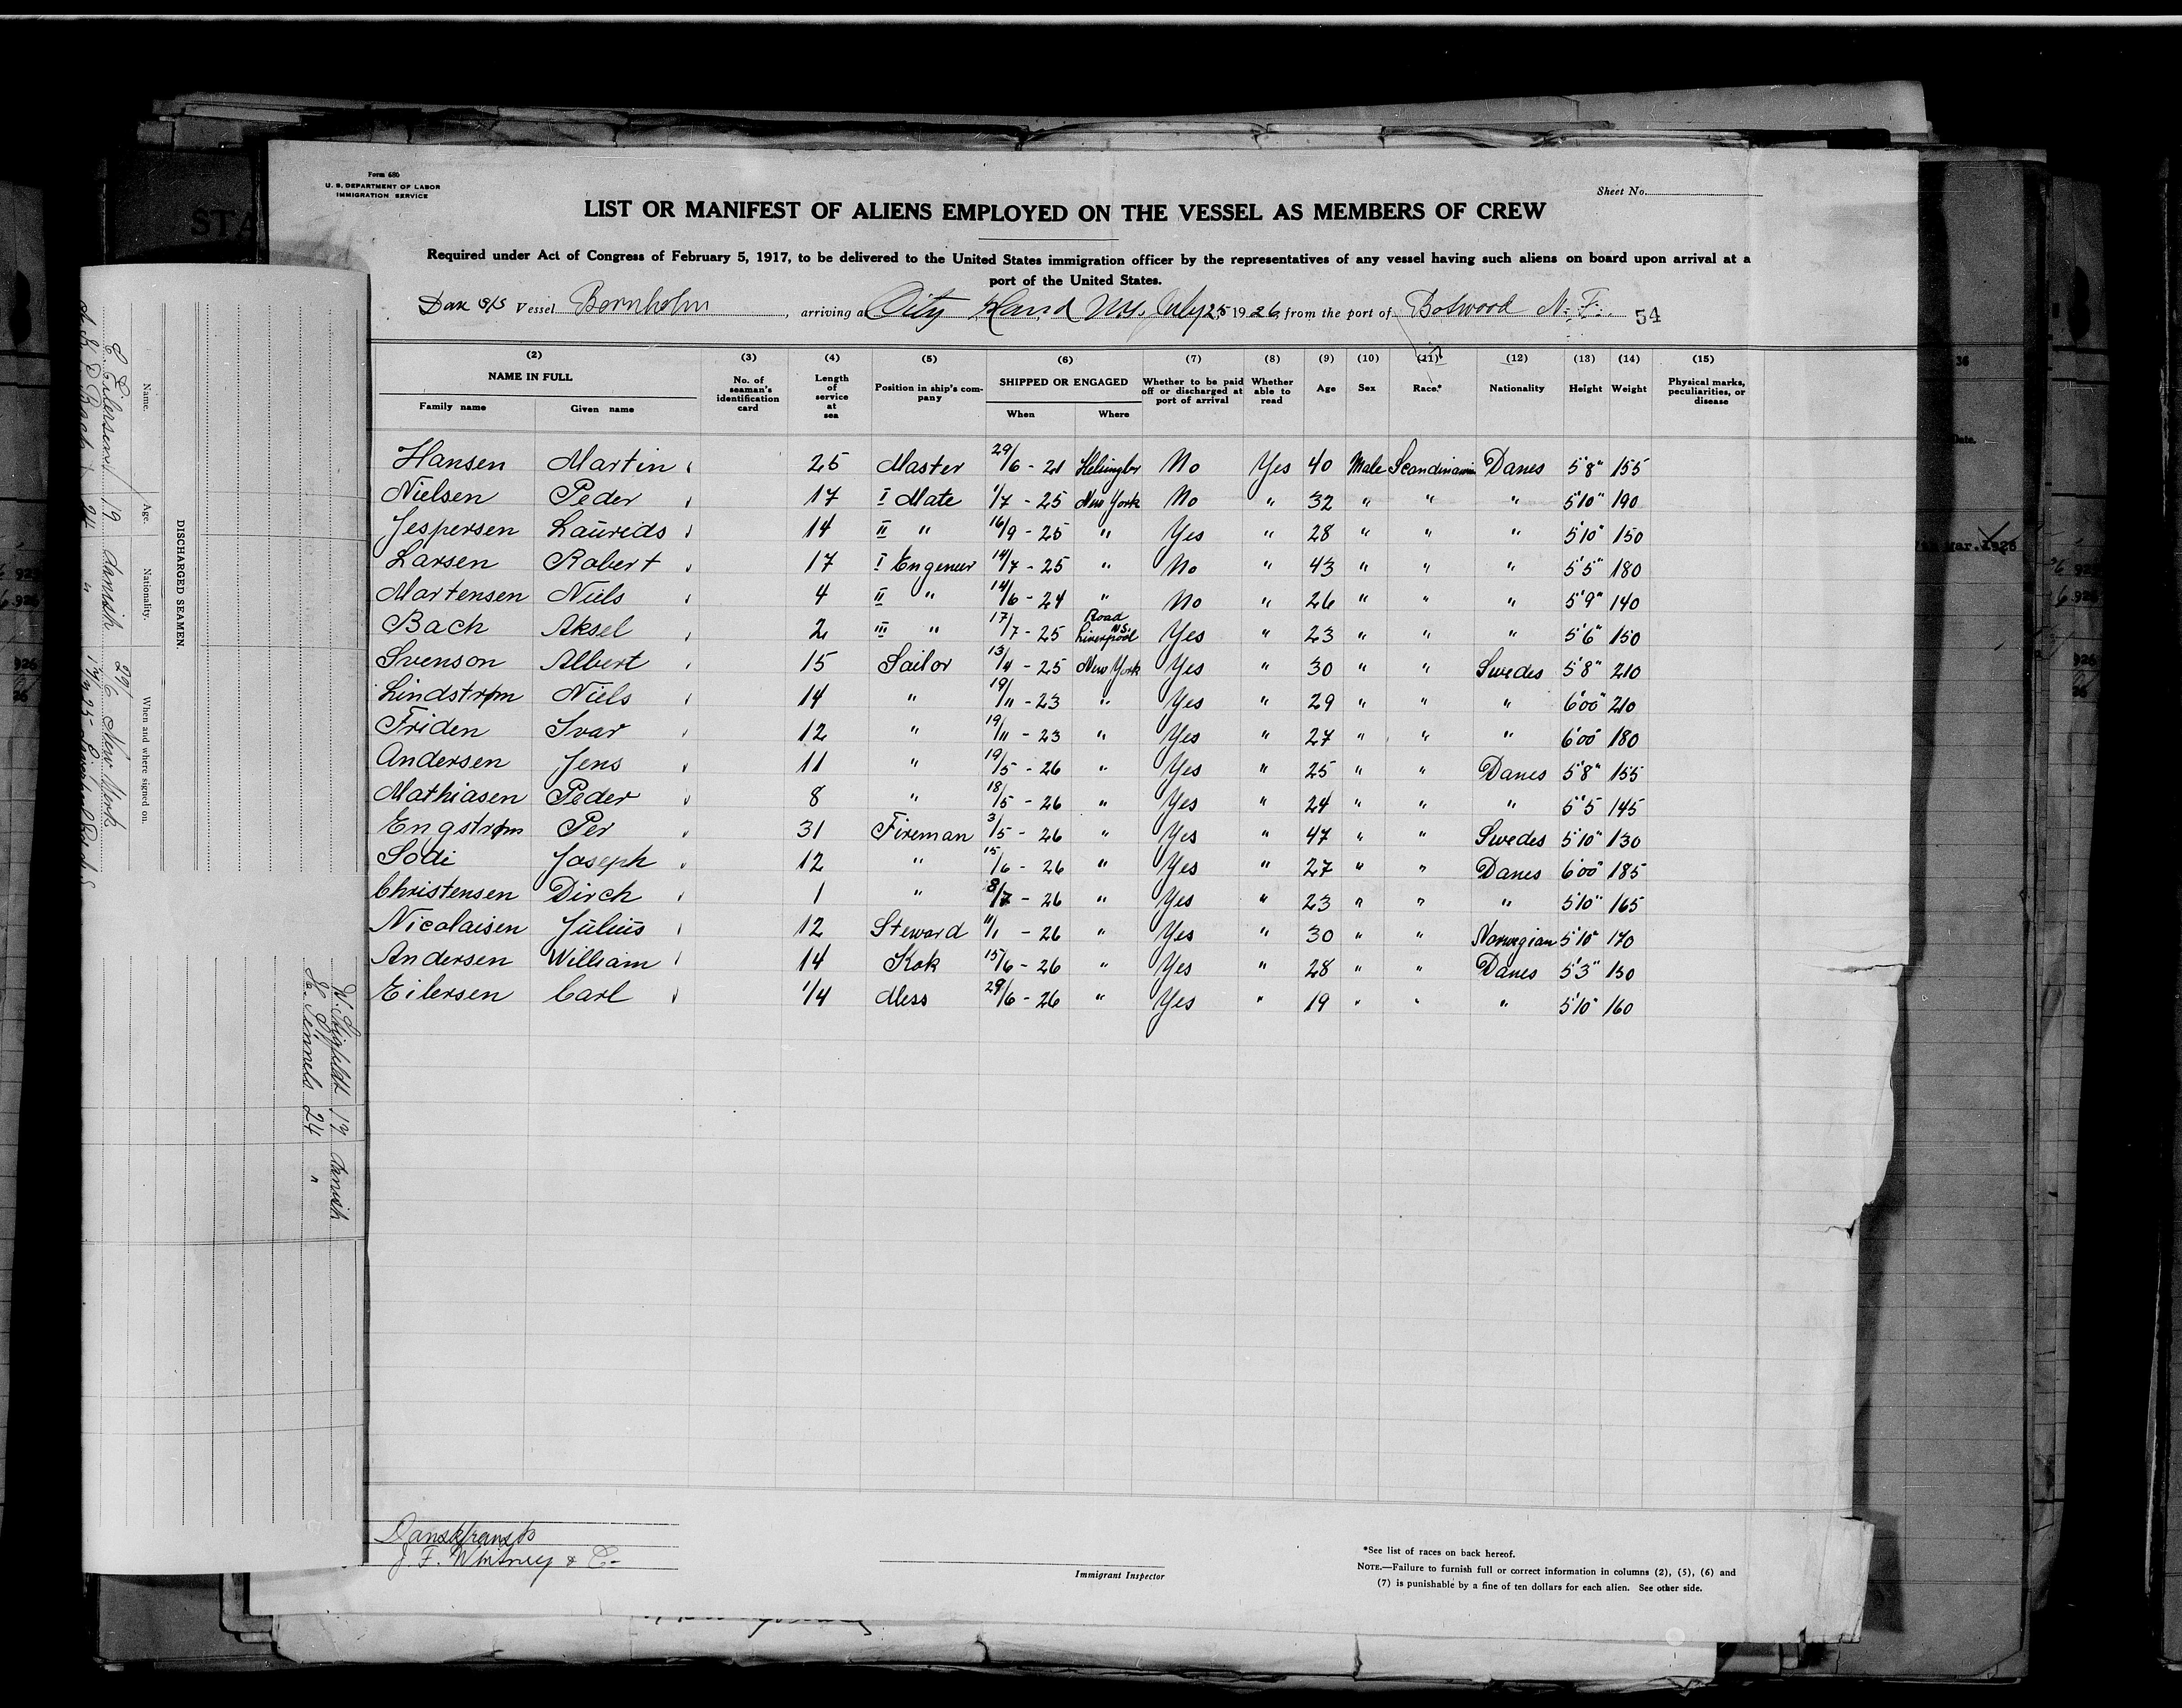 Form 680
U. S. DEPARTMENT OF LABOR
IMMIGRATION SERVICE
Sheet No.
LIST OR MANIFEST OF ALIENS EMPLOYED ON THE VESSEL AS MEMBERS OF CREW
Required under Act of Congress of February 5, 1917, to be delivered to the United States immigration officer by the representatives of any vessel having such aliens on board upon arrival at a
port of the United States.
Dan S/S Vessel Bornholm, arriving at City Island N.Y. July 25 1926, from the port of Botwood N. F. 54
(2) (3) (4) (5) (6) (7) (8) (9) (10) (11) (12) (13) (14) (15)
NAME IN FULL Family name Given name No. of seaman's identification card Length of service at sea Position in ship's company SHIPPED OR ENGAGED When Where Whether to be paid off or discharged at port of arrival Whether able to read Age Sex Race.* Nationality Height Weight Physical marks, peculiarities, or disease
Hansen Martin 25 Master 29/6 - 21 Helsingbor No Yes 40 Male Scandinavian Danes 5'8" 155
Nielsen Peder 17 I Mate 1/7 - 25 New York No " 32 " " " 5'10" 190
Jespersen Laurids 14 II " 16/9 - 25 " Yes " 28 " " " 5'10" 150
Larsen Robert 17 I Engeneer 14/7 - 25 " No " 43 " " " 5'5" 180
Martensen Niels 4 II " 14/6 - 24 " No " 26 " " " 5'9" 140
Bach Aksel 2 III " 17/7 - 25 Road Liverpool N.S. Yes " 23 " " " 5'6" 150
Svenson Albert 15 Sailor 13/4 - 25 New York Yes " 30 " " Swedes 5'8" 210
Lindstrøm Niels 14 " 19/11 - 23 " Yes " 29 " " " 6'00" 210
Friden Ivar 12 " 19/11 - 23 " Yes " 27 " " " 6'00" 180
Andersen Jens 11 " 19/5 - 26 " Yes " 25 " " Danes 5'8" 155
Mathiasen Peder 8 " 18/5 - 26 " Yes " 24 " " " 5"5 145
Engstrøm Per 31 Fireman 3/5 - 26 " Yes " 47 " " Swedes 5'10" 130
Sodi Joseph 12 " 15/6 - 26 " Yes " 27 " " Danes 6'00" 185
Christensen Dirch 1 " 8/7 - 26 " Yes " 23 " " " 5'10" 165
Nicolaisen Julius 12 Steward 11/1 - 26 " Yes " 30 " " Norwegian 5'10" 170
Andersen William 14 Kok 15/6 - 26 " Yes " 28 " " Danes 5'3" 150
Eilersen Carl 1/4 Mess 29/6 - 26 " Yes " 19 " " " 5'10" 160
J. F. Whitney & Co
Immigrant Inspector
*See list of races on back hereof.
NOTE.—Failure to furnish full or correct information in columns (2), (5), (6) and
(7) is punishable by a fine of ten dollars for each alien. See other side.
DISCHARGED SEAMEN.
Name. Age. Nationality. When and where signed on.
C Eilersen 19 danish 29/6 New York
Bach 24 " 17/7 25 Liverpool
17 danish
24 "
STA
36
Date.
Mar. 1926